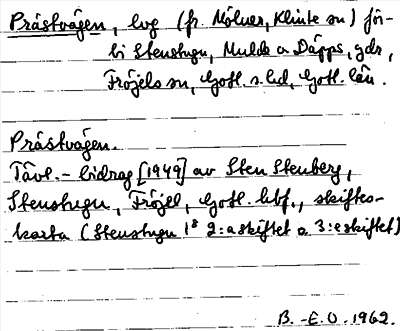 Prästvägen, lvg (fr. Mölner, Klinte sn) för-
bi Stenstugu, Mulde o Däpps, gdr,
Fröjels sn, Gotl. s. hd, Gotl. län.
Prästvägen.
Tävl.-bidrag [1949] av Sten Stenberg,
Stenstugu, Fröjel, Gotl. hbf., skiftes-
karta (Stenstugu 1⁸ 2:a skiftet o. 3:e skiftet)
B.-E.O. 1962.